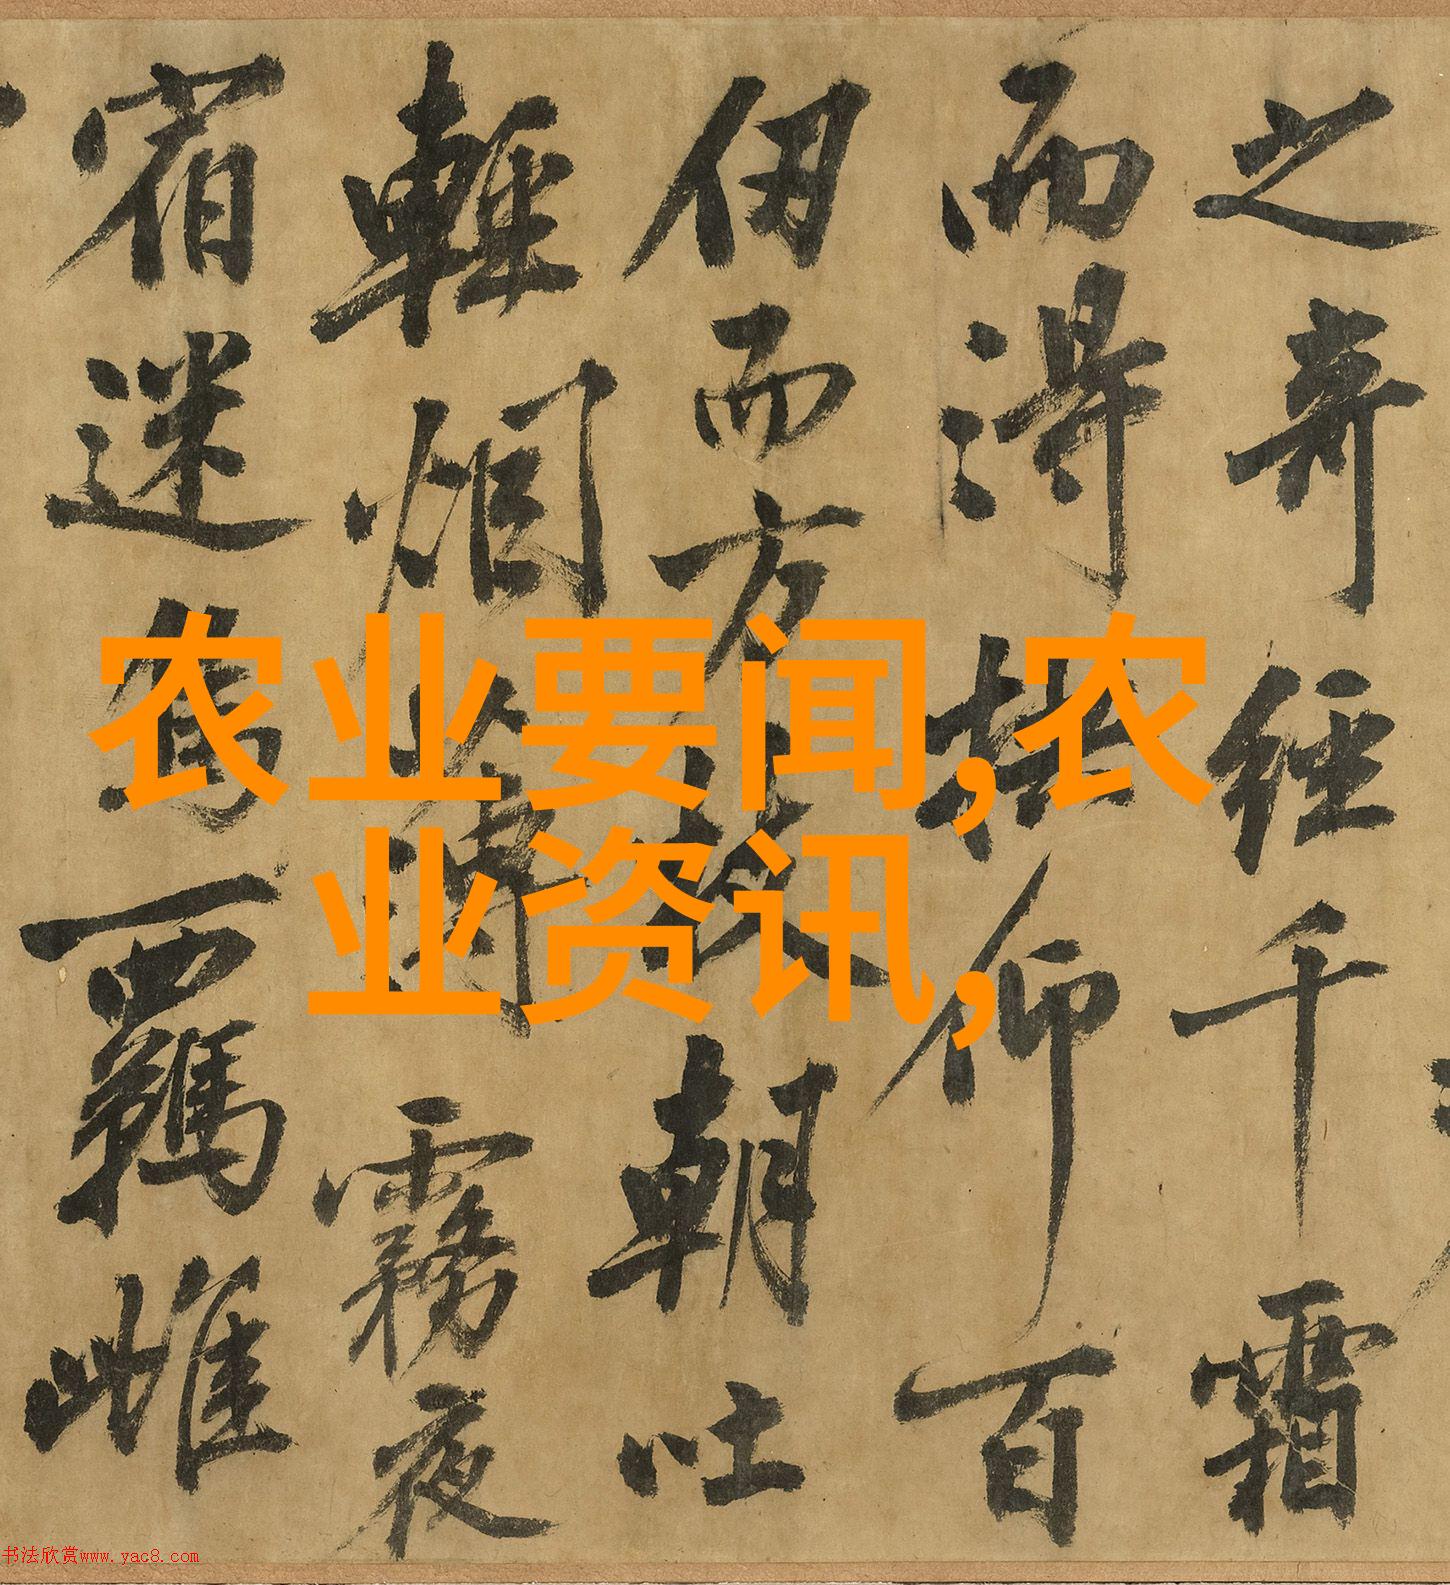 之奇經千霜
而得 仰百
仞而方 朝吐
輕烟 霧夜
宿迷 羈雌
农业要闻,农
业资讯,
书法欣赏www.yac8.com